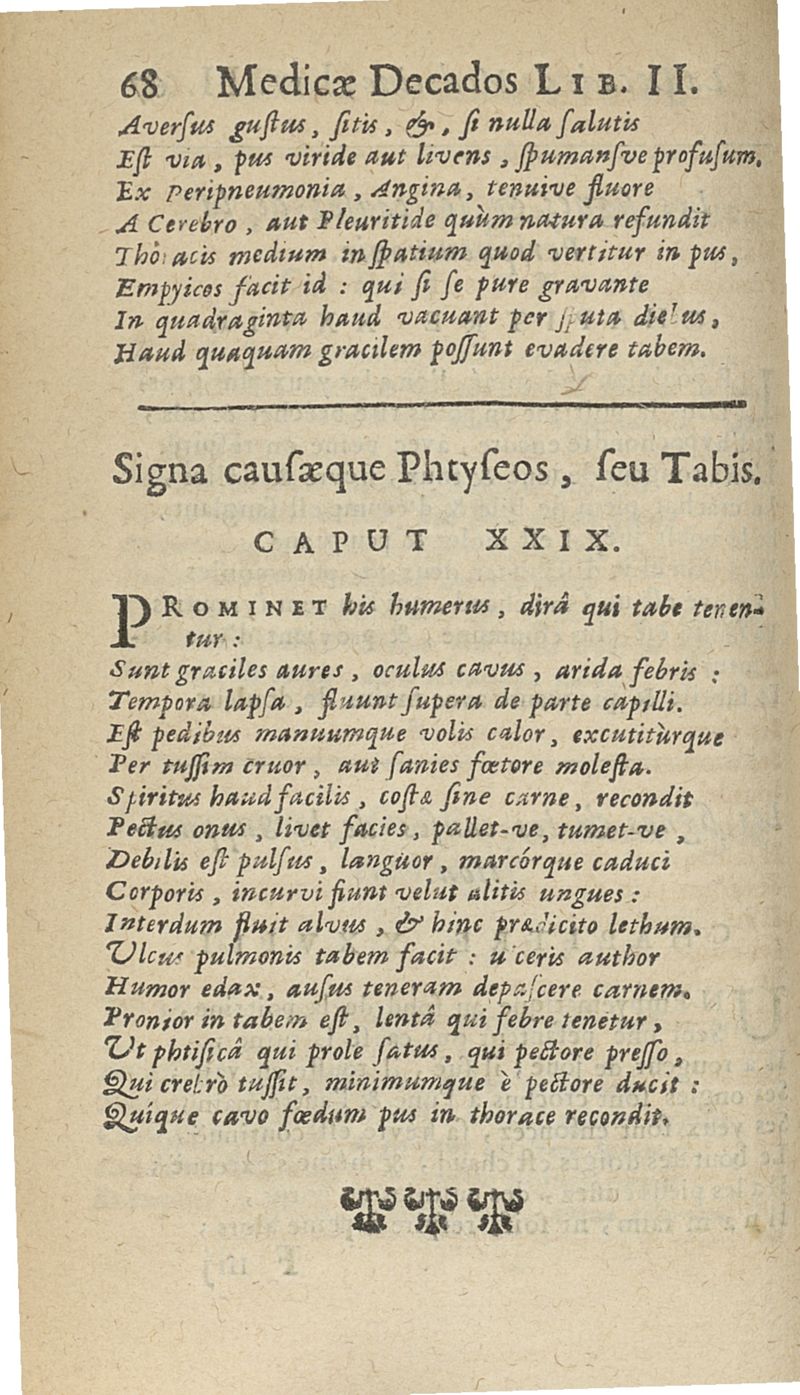 68 Medicæ Decados LIB. II.
Aversus gustus, sitis, &, si nulla salutis
Est via, pus viride aut livens, spumansve profusum.
Ex Peripneumonia, Angina, tenuive fluore
A Cerebro, aut Pleuritide quùm natura refundit
Thoracis medium in spatium quod vertitur in pus,
Empyicos facit id : qui si se pure gravante
In quadraginta haud vacuant per sputa diebus,
Haud quaquam gracilem possunt evadere tabem.
Signa causæque Phtyseos, seu Tabis.
CAPUT XXIX.
PROMINET his humerus, dirâ qui tabe tenen-
tur :
Sunt graciles aures, oculus cavus, arida febris :
Tempora lapsa, fluunt supera de parte capilli.
Est pedibus manuumque volis calor, excutitùrque
Per tussim cruor, aut sanies fœtore molesta.
Spiritus haud facilis, costæ sine carne, recondit
Pectus onus, livet facies, pallet-ve, tumet-ve,
Debilis est pulsus, languor, marcórque caduci
Corporis, incurvi fiunt velut alitis ungues :
Interdum fluit alvus, & hinc prædicito lethum.
Ulcus pulmonis tabem facit : ulceris author
Humor edax, ausus teneram depascere carnem.
Pronior in tabem est, lentâ qui febre tenetur,
Ut phtisicâ qui prole satus, qui pectore presso,
Qui crebrò tussit, minimumque è pectore ducit :
Quíque cavo fœdum pus in thorace recondit.